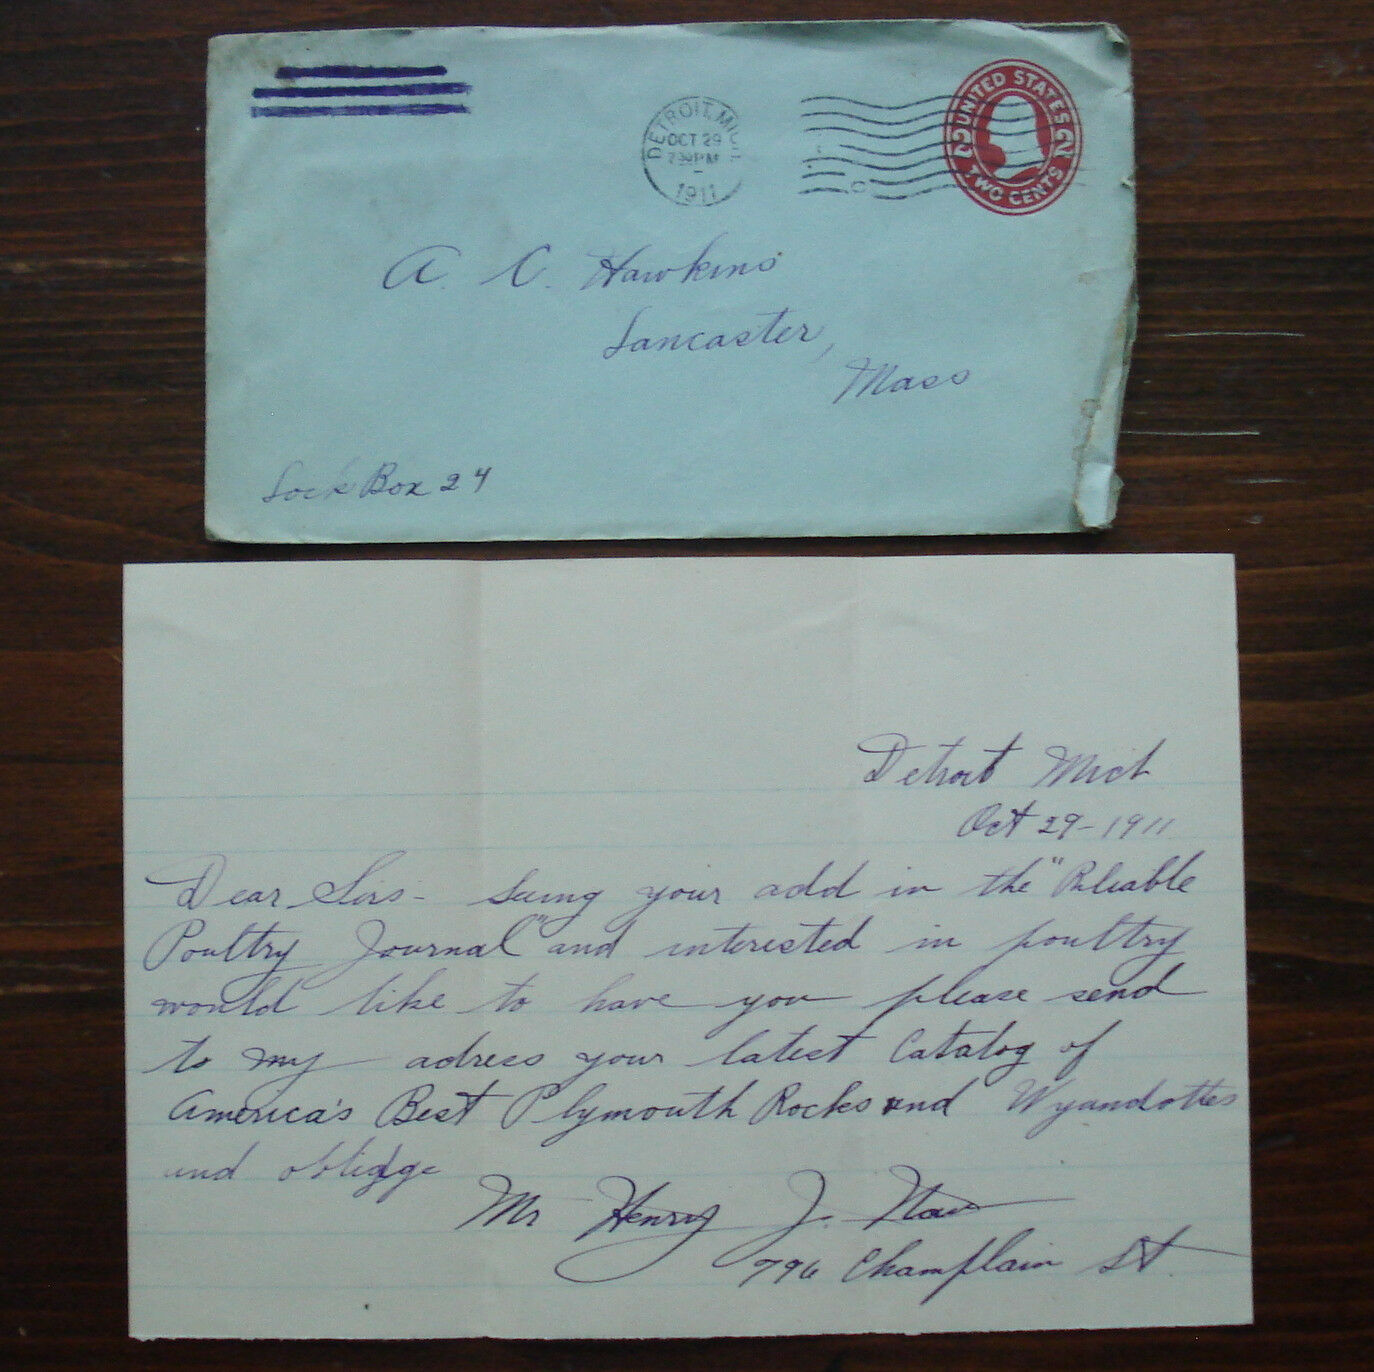 DETROIT, MICH.
OCT 29
2 30 PM
1911
UNITED STATES
2 2
TWO CENTS
A. C. Hawkins
Lancaster,
Mass
Lock Box 24
Detroit Mich
Oct 29-1911
Dear Sirs- Seeing your add in the "Reliable
Poultry Journal" and interested in poultry
would like to have you please send
to my adress your latest Catalog of
America's Best Plymouth Rocks and Wyandottes
and oblidge
Mr Henry J.
796 Champlain St